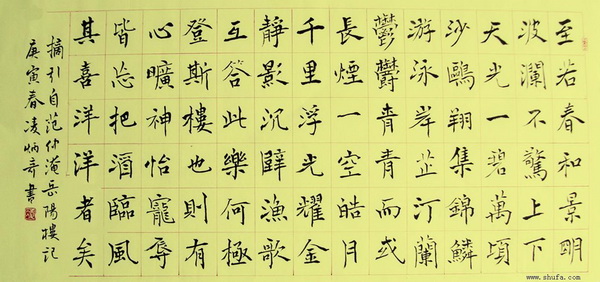 至若春和景明
波瀾不驚上下
天光一碧萬頃
沙鷗翔集錦鱗
游泳岸芷汀蘭
鬱鬱青青而或
長煙一空皓月
千里浮光耀金
靜影沉璧漁歌
互答此樂何極
登斯樓也則有
心曠神怡寵辱
皆忘把酒臨風
其喜洋洋者矣
摘引自范仲淹岳陽樓記
庚寅春凌炳奇書
www.shufa.com